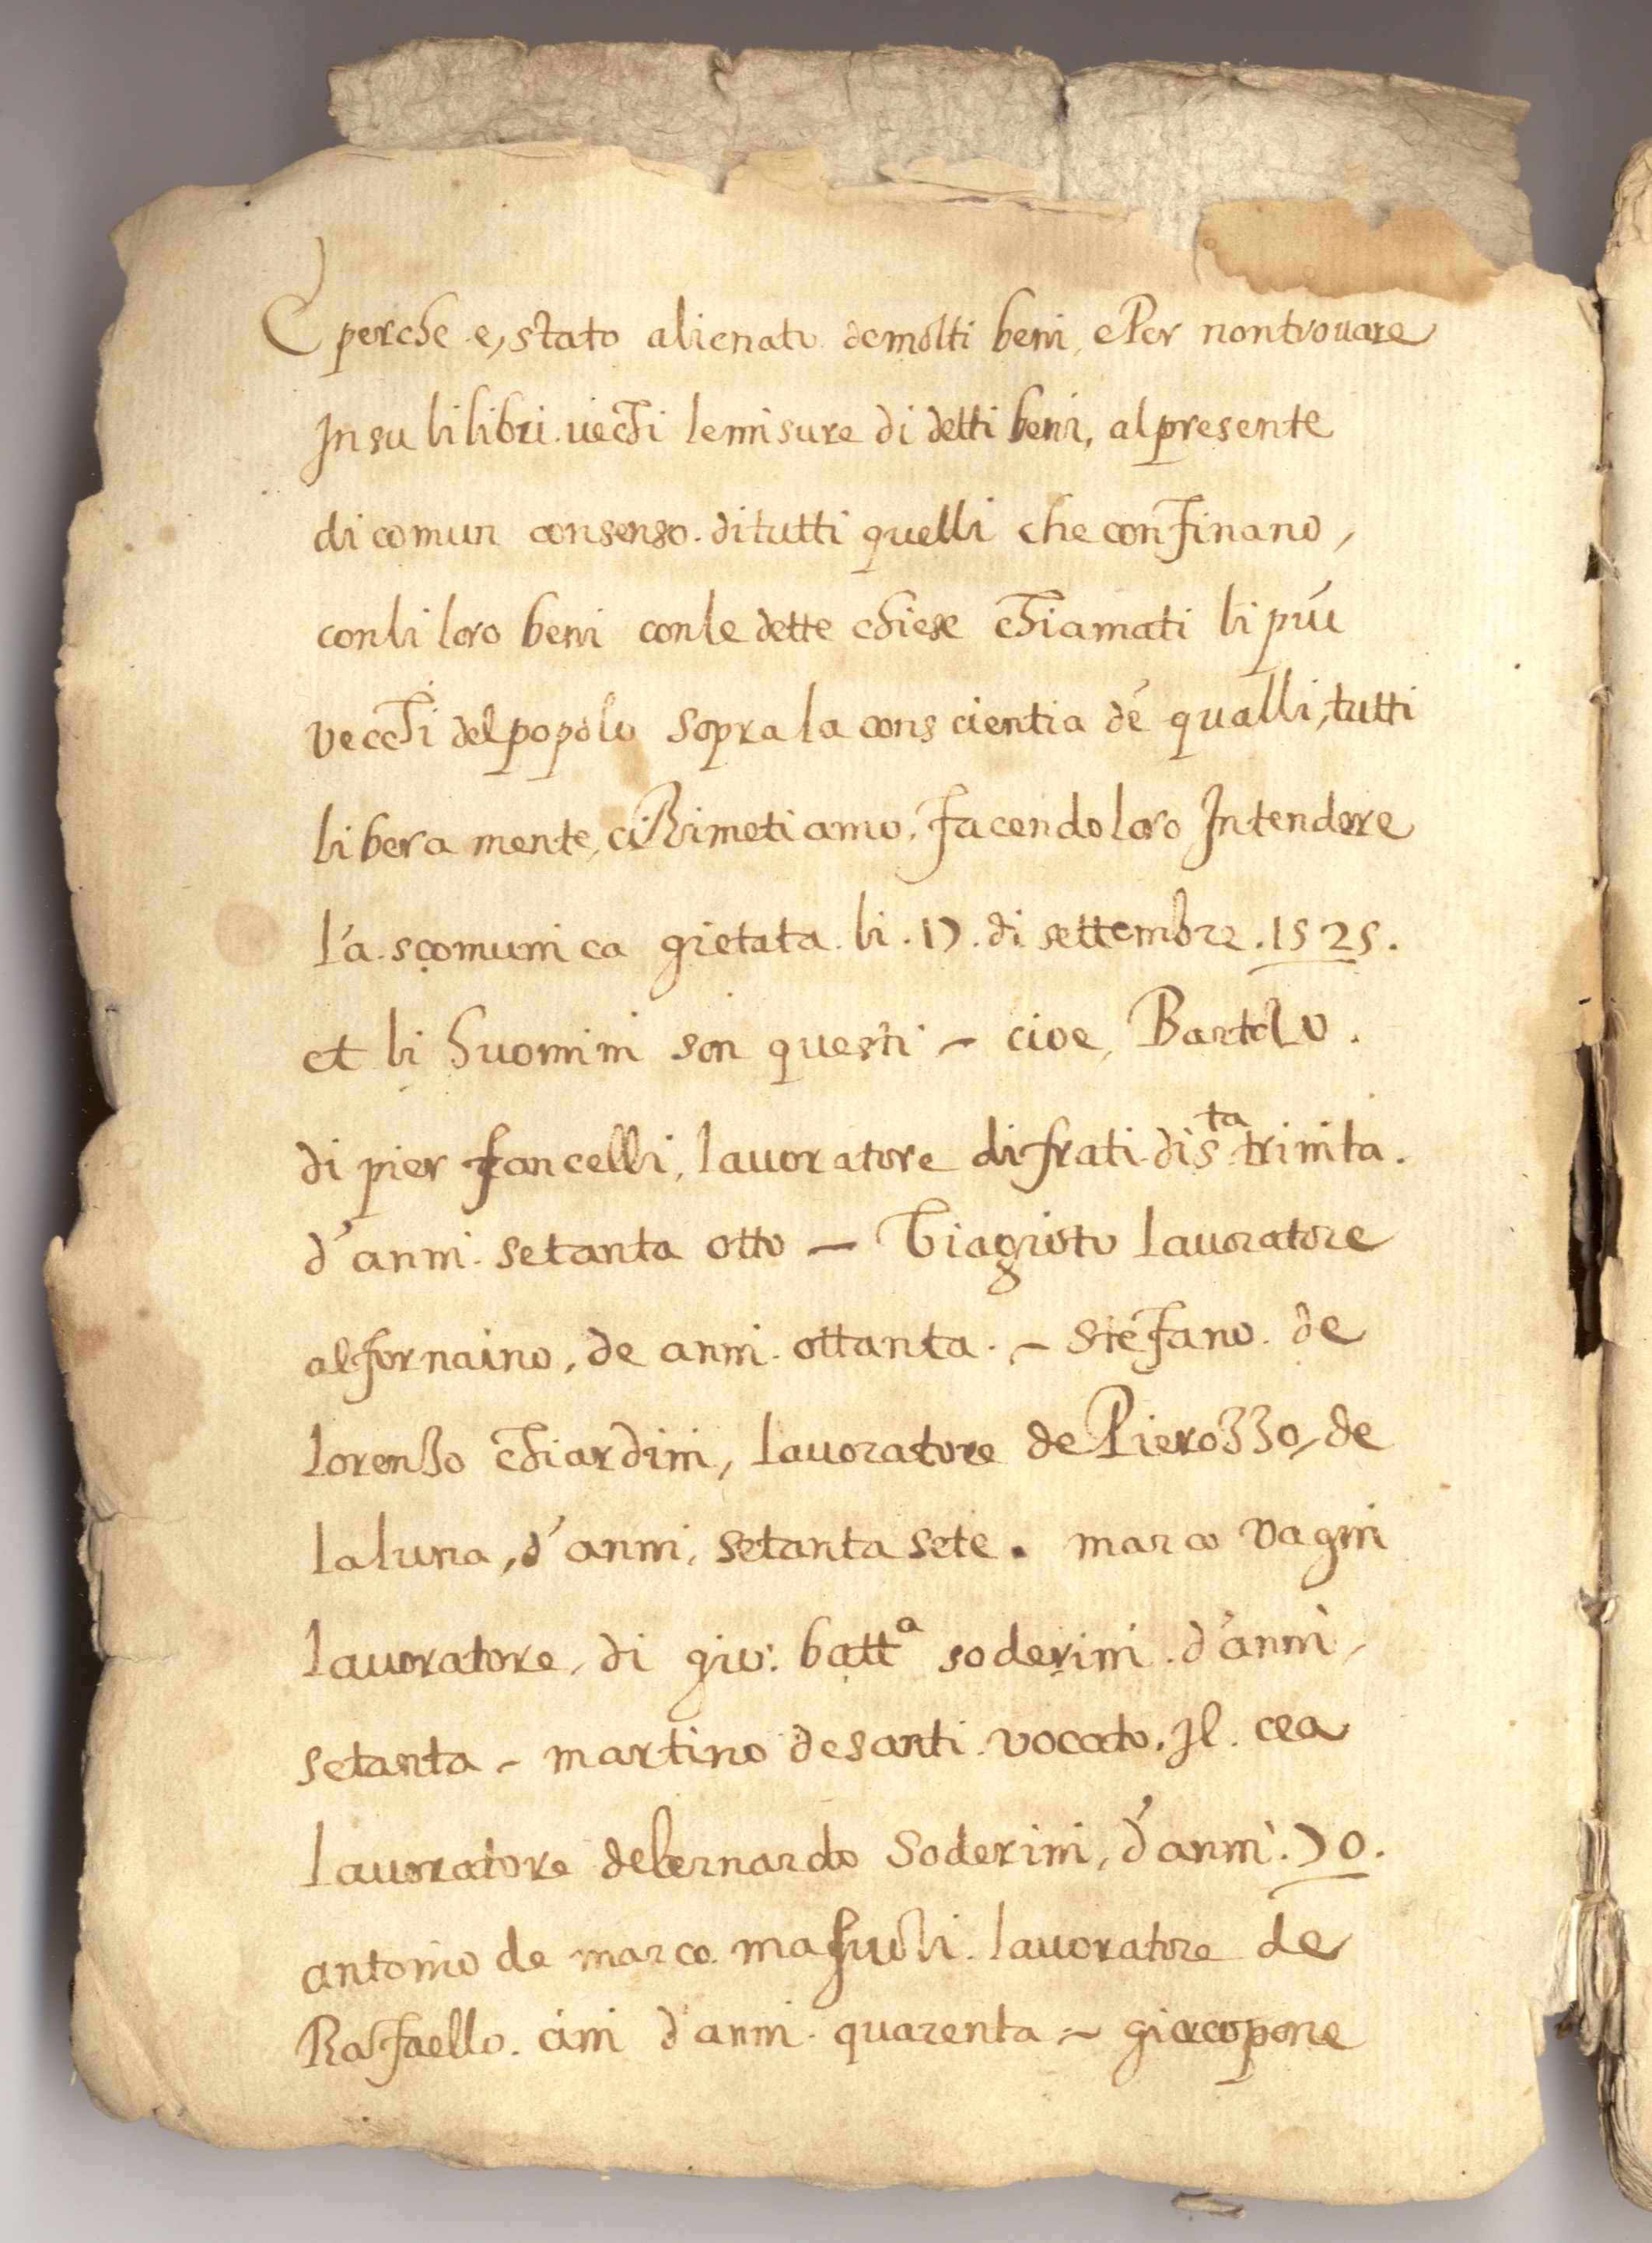 E perche e, stato alienato de molti beni, e Per non trovare
In su li libri. vechi le misure di detti beni, al presente
di comun consenso. di tutti quelli che confinano,
con li loro beni con le dette chiese chiamati li piu
vecchi del popolo sopra la conscientia de qualli, tutti
libera mente, ci Rimetiamo. facendo loro Intendere
la scomunica gietata. li. 17. di settembre. 1525.
et li huomini son questi – cioe, Bartolo.
di pier fancelli, lavoratore di frati di s.ta trinita.
d'anni. setanta otto – Biagioto lavoratore
al fornaino, de anni. ottanta. – Stefano. de
Lorenzo chiardini, lavoratore de Pierozzo, de
la luna, d'anni, setanta sete. marco Vagni
lavoratore, di gio: batt.a soderini. d'anni,
setanta – martino de santi. vocato. Il. cea
lavoratore de bernardo Soderini, d'anni. 70.
antonio de marco lavoratore de
Raffaello. cini d'anni. quarenta – giacopone